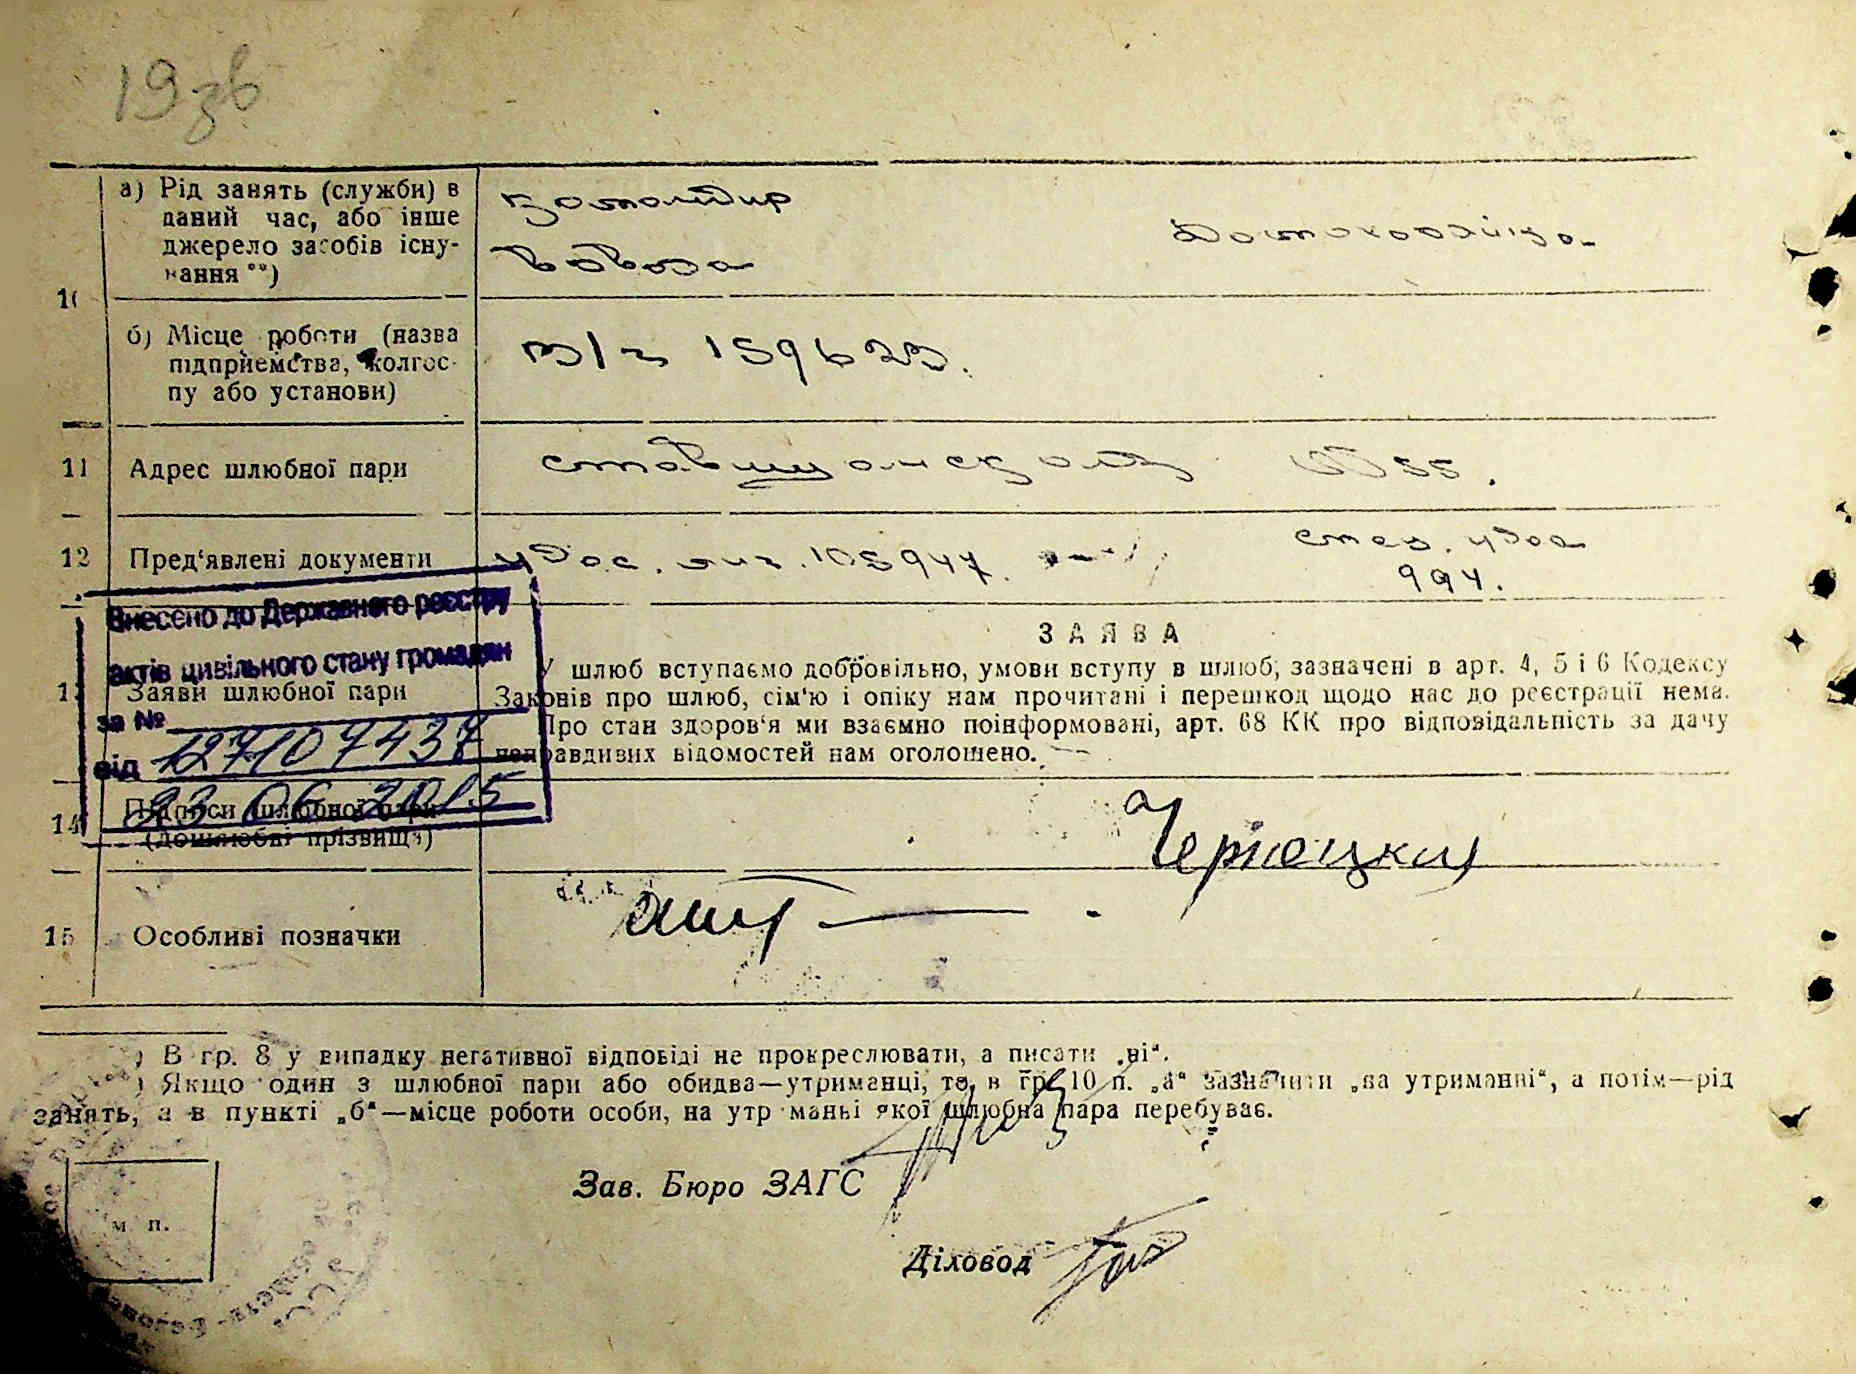 19зв
а) Рід занять (служби) в
даний час, або інше
джерело засобів існу-
вання **)
командир
взвода
домохозяйка
10
б) Місце роботи (назва
підприємства, колгос-
пу або установи)
в/ч 159623.
11 Адрес шлюбної пари
55.
12 Пред‘явлені документи
удос. лич. 105947.
удос
994.
Внесено до Державного реєстру
актів цивільного стану громадян
за №
127107437
від
23 06 2015
13 Заяви шлюбної пари
ЗАЯВА
У шлюб вступаємо добровільно, умови вступу в шлюб, зазначені в арт. 4, 5 і 6 Кодексу
Законів про шлюб, сім'ю і опіку нам прочитані і перешкод щодо нас до реєстрації нема.
Про стан здоров‘я ми взаємно поінформовані, арт. 68 КК про відповідальність за дачу
неправдивих відомостей нам оголошено.
14 Підписи шлюбної пари
(дошлюбні прізвища)
15 Особливі позначки
) В гр. 8 у випадку негативної відповіді не прокреслювати, а писати „ні“.
) Якщо один з шлюбної пари або обидва—утриманці, то, в гр. 10 п. „а“ зазначити „на утриманні“, а потім—рід
занять, а в пункті „б“—місце роботи особи, на утриманні якої шлюбна пара перебуває.
Зав. Бюро ЗАГС
м. п.
Діловод